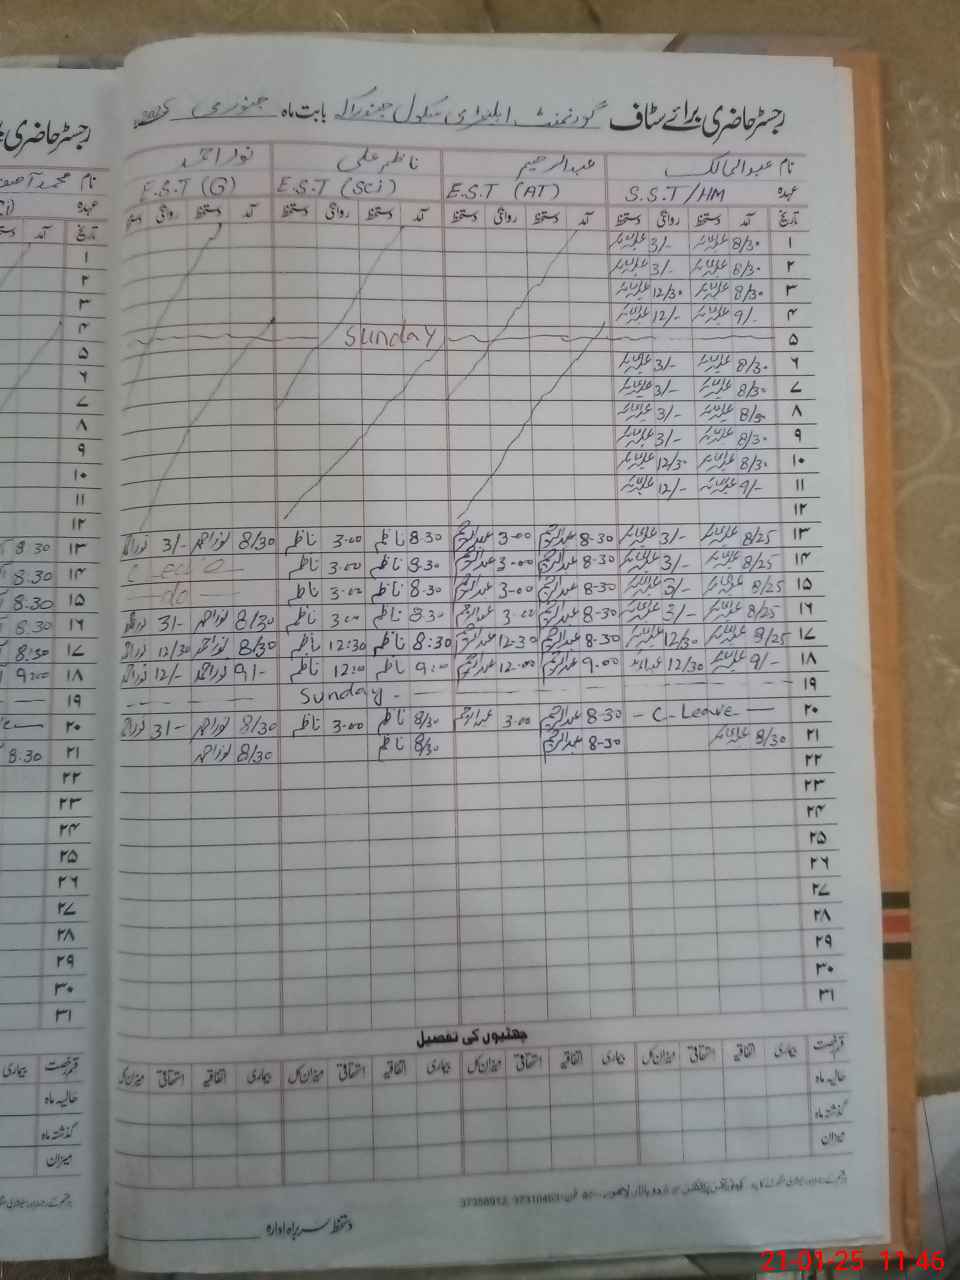 رجسٹر حاضری برائے سٹاف گورنمنٹ ایلمنٹری سکول بابت ماہ جنوری 2025
نام عبدالمالک عبدالرحیم ناظم علی نور احمد
عہدہ S.S.T/HM E.S.T (AT) E.S.T (Sci) E.S.T (G)
تاریخ آمد دستخط روانگی دستخط آمد دستخط روانگی دستخط آمد دستخط روانگی دستخط آمد دستخط روانگی دستخط
۱ 8/30 3/-
۲ 8/30 3/-
۳ 8/30 12/30
۴ 9/- 12/-
۵ Sunday
۶ 8/30 3/-
۷ 8/30 3/-
۸ 8/30 3/-
۹ 8/30 3/-
۱۰ 8/30 12/30
۱۱ 9/- 12/-
۱۲
۱۳ 8/25 3/- 8-30 عبدالرحیم 3-00 عبدالرحیم 8-30 ناظم 3-00 ناظم 8/30 نور احمد 3/- نور احمد
۱۴ 8/25 3/- 8-30 عبدالرحیم 3-00 عبدالرحیم 8-30 ناظم 3-00 ناظم C Leave
۱۵ 8/25 3/- 8-30 عبدالرحیم 3-00 عبدالرحیم 8-30 ناظم 3-00 ناظم do
۱۶ 8/25 3/- 8-30 عبدالرحیم 3-00 عبدالرحیم 8-30 ناظم 3-00 ناظم 8/30 نور احمد 3/- نور احمد
۱۷ 8/25 12/30 8-30 عبدالرحیم 12-30 عبدالرحیم 8:30 ناظم 12:30 ناظم 8/30 نور احمد 12/30 نور احمد
۱۸ 9/- 12/30 9-00 عبدالرحیم 12-00 عبدالرحیم 9:00 ناظم 12:00 ناظم 9/- نور احمد 12/- نور احمد
۱۹ Sunday
۲۰ C-Leave 8-30 عبدالرحیم 3-00 عبدالرحیم 8/30 ناظم 3-00 ناظم 8/30 نور احمد 3/- نور احمد
۲۱ 8/30 8-30 عبدالرحیم 8/30 ناظم 8/30 نور احمد
۲۲
۲۳
۲۴
۲۵
۲۶
۲۷
۲۸
۲۹
۳۰
۳۱
چھٹیوں کی تفصیل
قسم رخصت بیماری اتفاقیہ استحقاقی میزان کل بیماری اتفاقیہ استحقاقی میزان کل بیماری اتفاقیہ استحقاقی میزان کل بیماری اتفاقیہ استحقاقی میزان کل
حالیہ ماہ
گذشتہ ماہ
میزان
دستخط سربراہ ادارہ
رجسٹر حاضری
نام محمد آصف
عہدہ
تاریخ آمد
۱
۲
۳
۴
۵
۶
۷
۸
۹
۱۰
۱۱
۱۲
۱۳ 8 30
۱۴ 8.30
۱۵ 8.30
۱۶ 8.30
۱۷ 8:30
۱۸ 9:00
۱۹
۲۰
۲۱ 8.30
۲۲
۲۳
۲۴
۲۵
۲۶
۲۷
۲۸
۲۹
۳۰
۳۱
قسم رخصت بیماری
حالیہ ماہ
گذشتہ ماہ
میزان
21-01-25 11:46